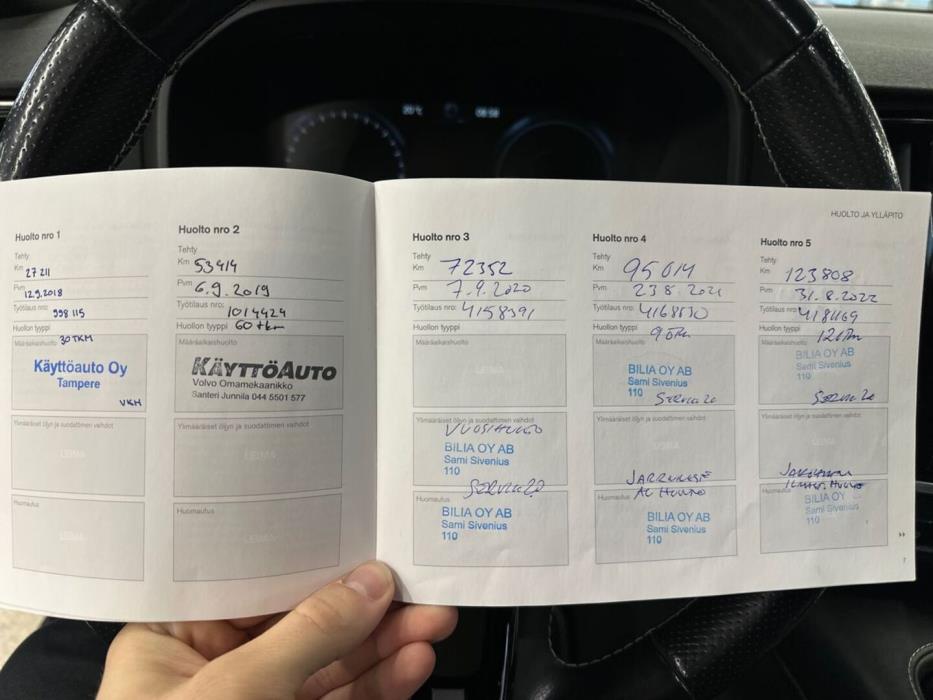 HUOLTO JA YLLÄPITO
Huolto nro 1
Tehty
Km 27 211
Pvm 12.9.2018
Työtilaus nro: 998 115
Huollon tyyppi
30 TKM
Määräaikaishuolto
Käyttöauto Oy
Tampere
VKH
Ylimääräiset öljyn ja suodattimen vaihdot
LEIMA
Huomautus
LEIMA
Huolto nro 2
Tehty
Km 53414
Pvm 6.9.2019
Työtilaus nro: 1014424
Huollon tyyppi 60 tkm
Määräaikaishuolto
KÄYTTÖAUTO
Volvo Omamekaanikko
Santeri Junnila 044 5501 577
Ylimääräiset öljyn ja suodattimen vaihdot
LEIMA
Huomautus
Huolto nro 3
Tehty
Km 72352
Pvm 7.9.2020
Työtilaus nro: 4158391
Huollon tyyppi
Määräaikaishuolto
LEIMA
Ylimääräiset öljyn ja suodattimen vaihdot
VUOSIHUOLTO
BILIA OY AB
Sami Sivenius
110
Huomautus
BILIA OY AB
Sami Sivenius
110
Huolto nro 4
Tehty
Km 95014
Pvm 23 8. 2021
Työtilaus nro:
Huollon tyyppi
Määräaikaishuolto
BILIA OY AB
Sami Sivenius
110
Ylimääräiset öljyn ja suodattimen vaihdot
LEIMA
Huomautus
BILIA OY AB
Sami Sivenius
110
Huolto nro 5
Tehty
Km 123808
Pvm 31.8.2022
Työtilaus nro: 4181169
Huollon tyyppi
Määräaikaishuolto
BILIA OY AB
Sami Sivenius
110
Ylimääräiset öljyn ja suodattimen vaihdot
Huomautus
BILIA OY
Sami Sivenius
110
7